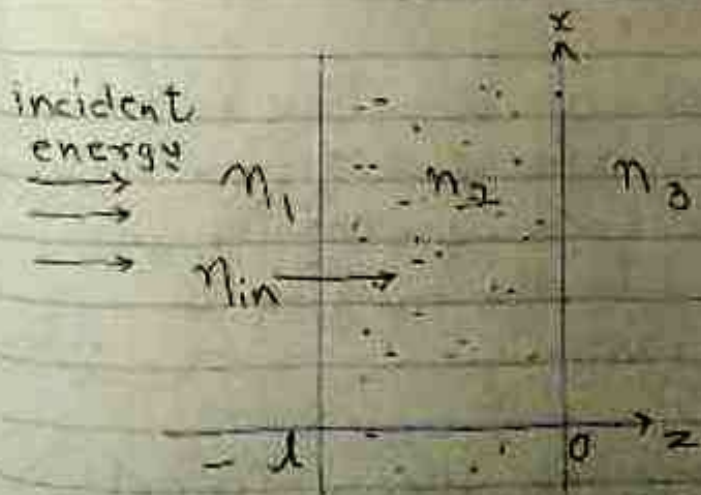 x
incident
energy
η₁ η₂ η₃
ηin
- l 0 z